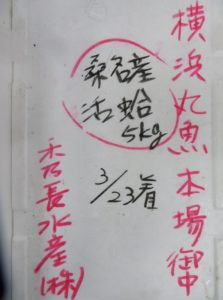 横浜丸魚本場御中
桑名産
活蛤
5kg
3/23着
香長水産(株)